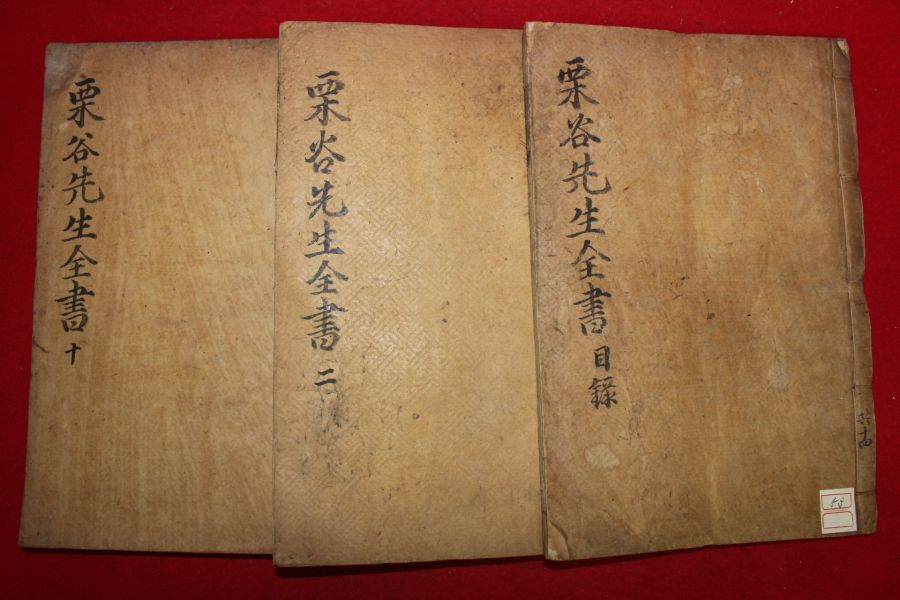 栗谷先生全書 目錄
共十四
栗谷先生全書 二
栗谷先生全書 十